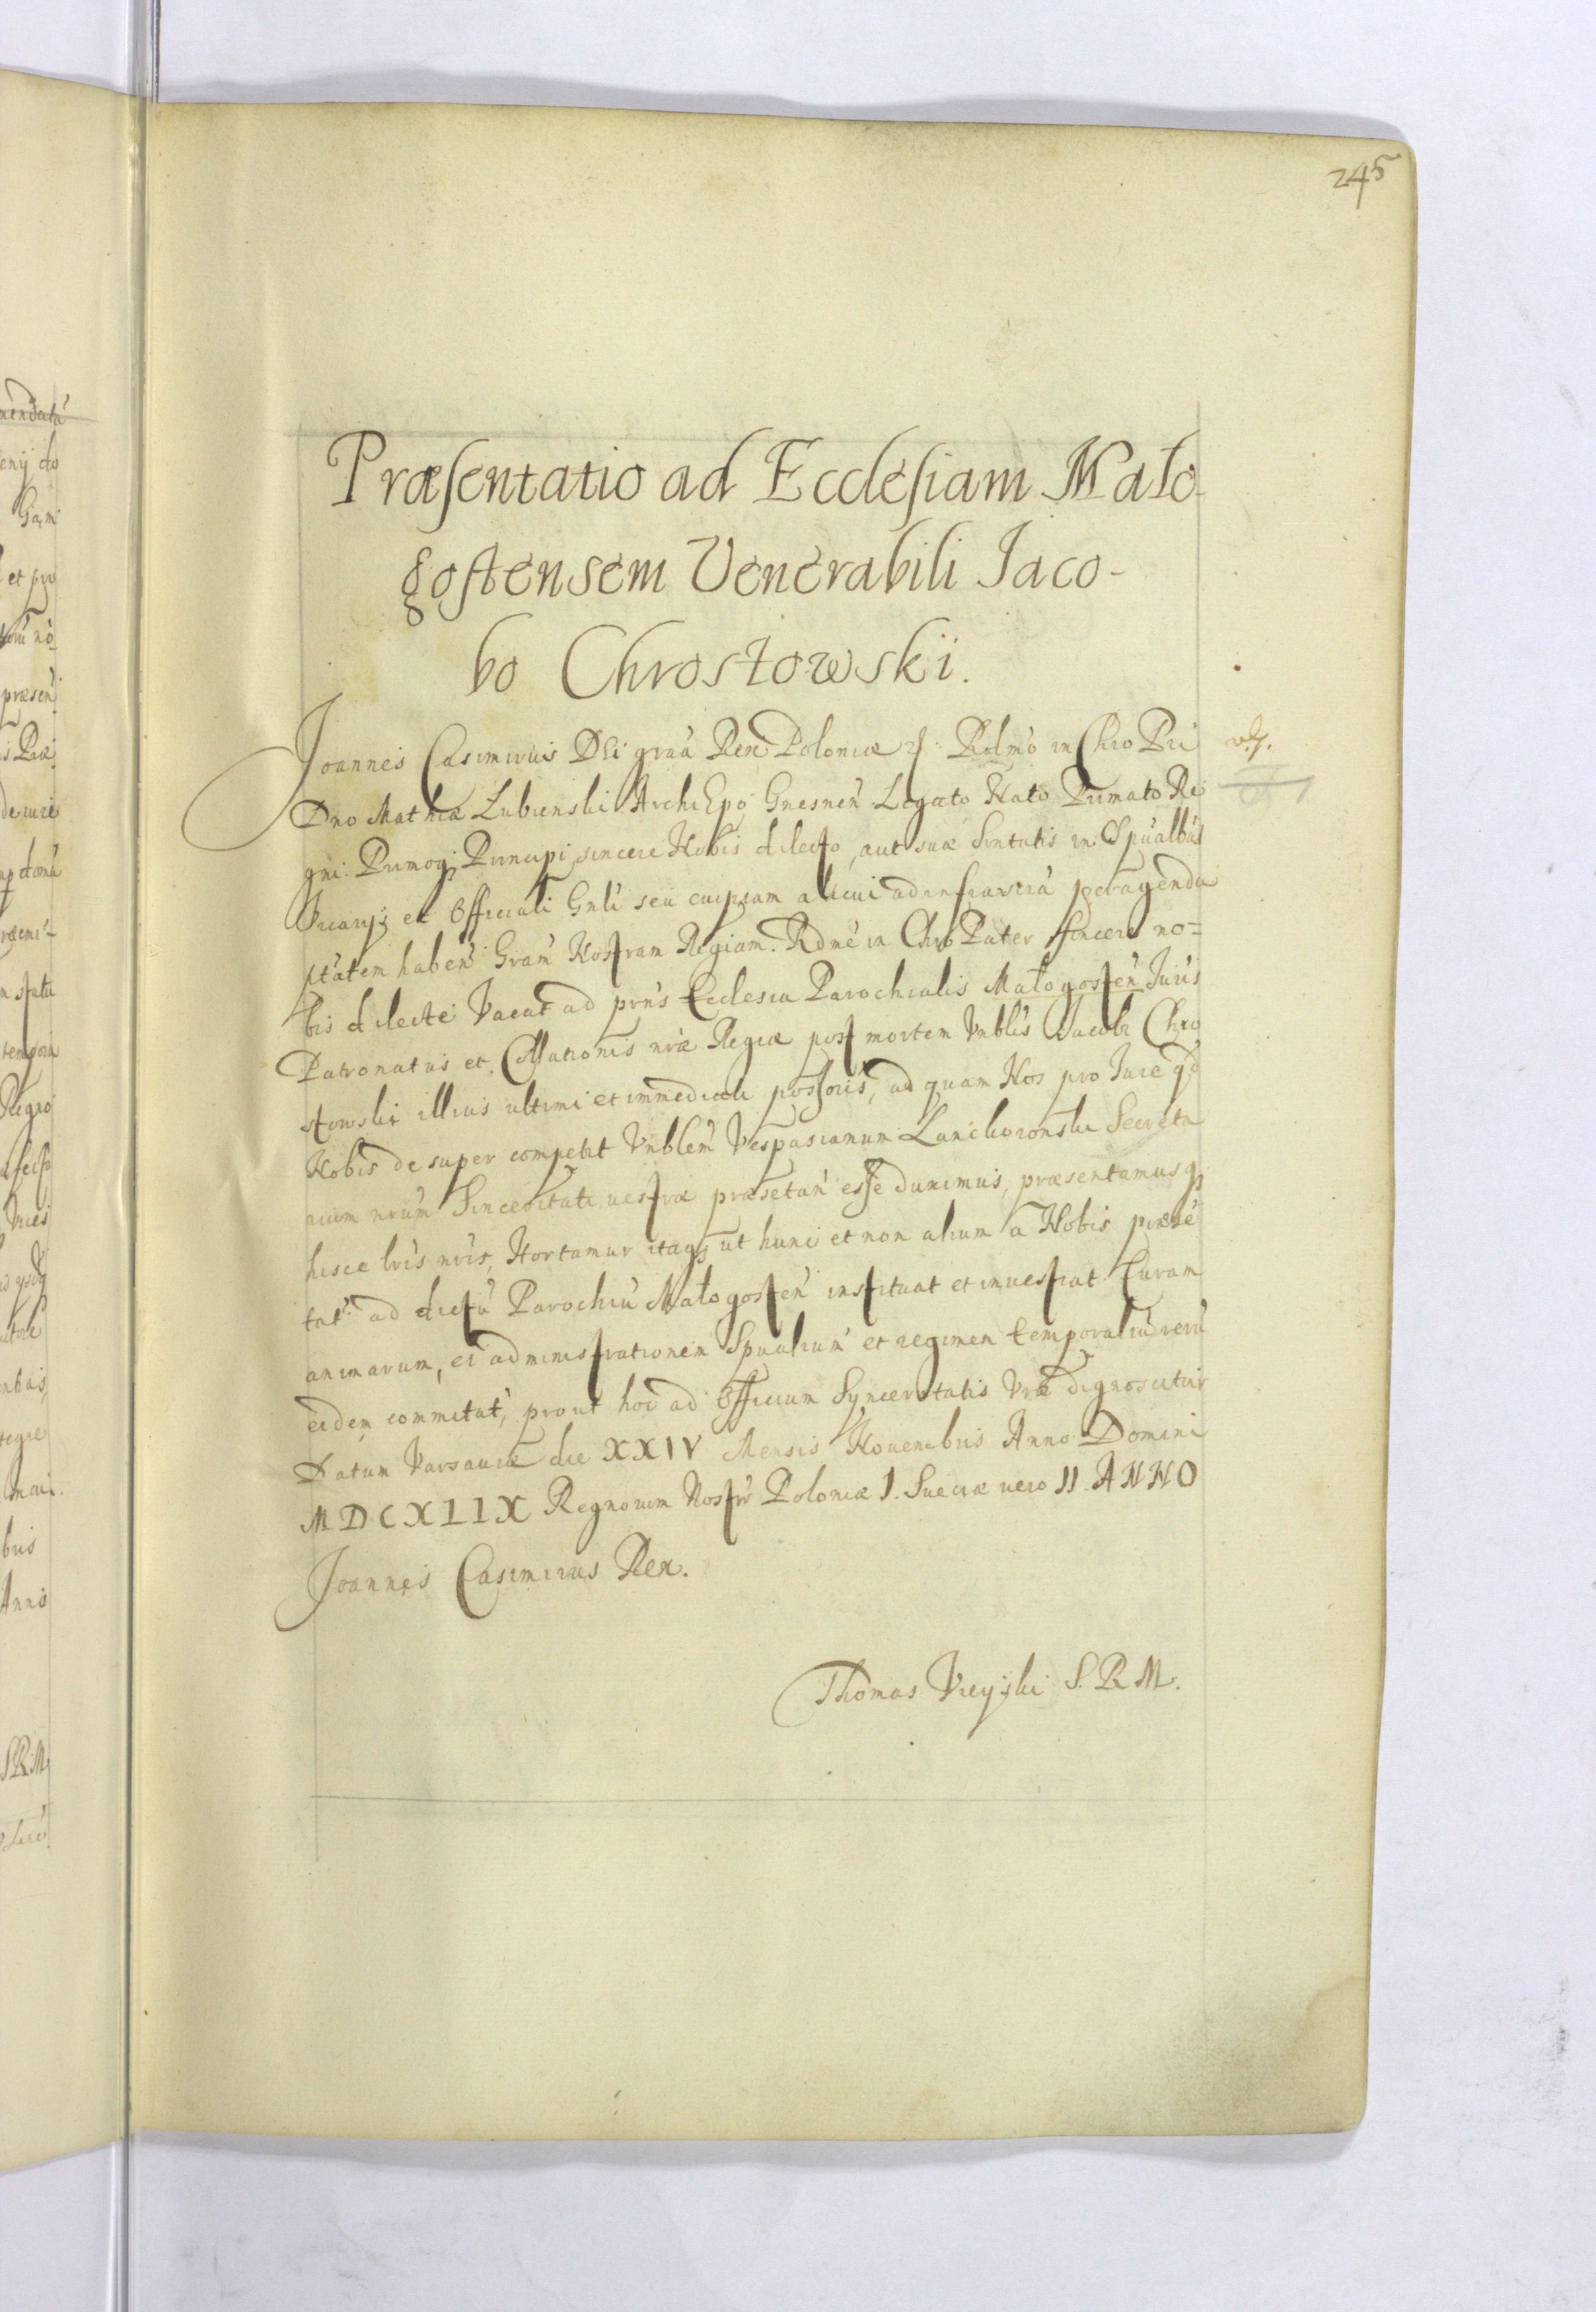 245
Præsentatio ad Ecclesiam Mało-
gostensem Venerabili Jaco-
bo Chrostowski.
Joannes Casimirus Dei graã Rex Poloniæ Rdmo in Chro Pri
Dno Mathiæ Lubienski Archi Epo Gnesneñ Legato Nato Primato Re
gni Primoq; Principi, sincere Nobis dilecto, aut suæ Sintatis in Spũalbus
Vicarijs et Officiali Gnli seu cuipiam alicui ad infrascrã peragenda
ptãtem habeñ Gram̃ Nostram Regiam. Rdme in Chro Pater sincere no=
bis dilecte Vacat ad prñs Ecclesia Parochialis Małogosteñ Juris
Patronatus et Collationis nræ Regiæ post mortem Vnblis Jacobi Chro
stowski illius ultimi et immediati possoris, ad quam Nos pro Jure qd
Nobis de super competit Vnblem Vespasianum Lanckoronski Secreta
rium nrũm Sinceritati vestræ præsetañ esse duximus, præsentamusq;
hisce lris nris, Hortamur itaq; ut hunc et non alium a Nobis præsẽ
tat: ad dictã Parochiã Małogosteñ instituat et investiat Curam
animarum, et administrationem Spualium et regimen temporaliũ rerũ
eidem committat, prout hoc ad Officium Synceritatis Vræ dignoscitur
Datum Varsaviæ die XXIV Mensis Novembris Anno Domini
MDCXLIIX Regnorum Nostrõ Poloniæ I. Sueciæ vero II. ANNO
Joannes Casimirus Rex.
Thomas Vieyski S. R. M.